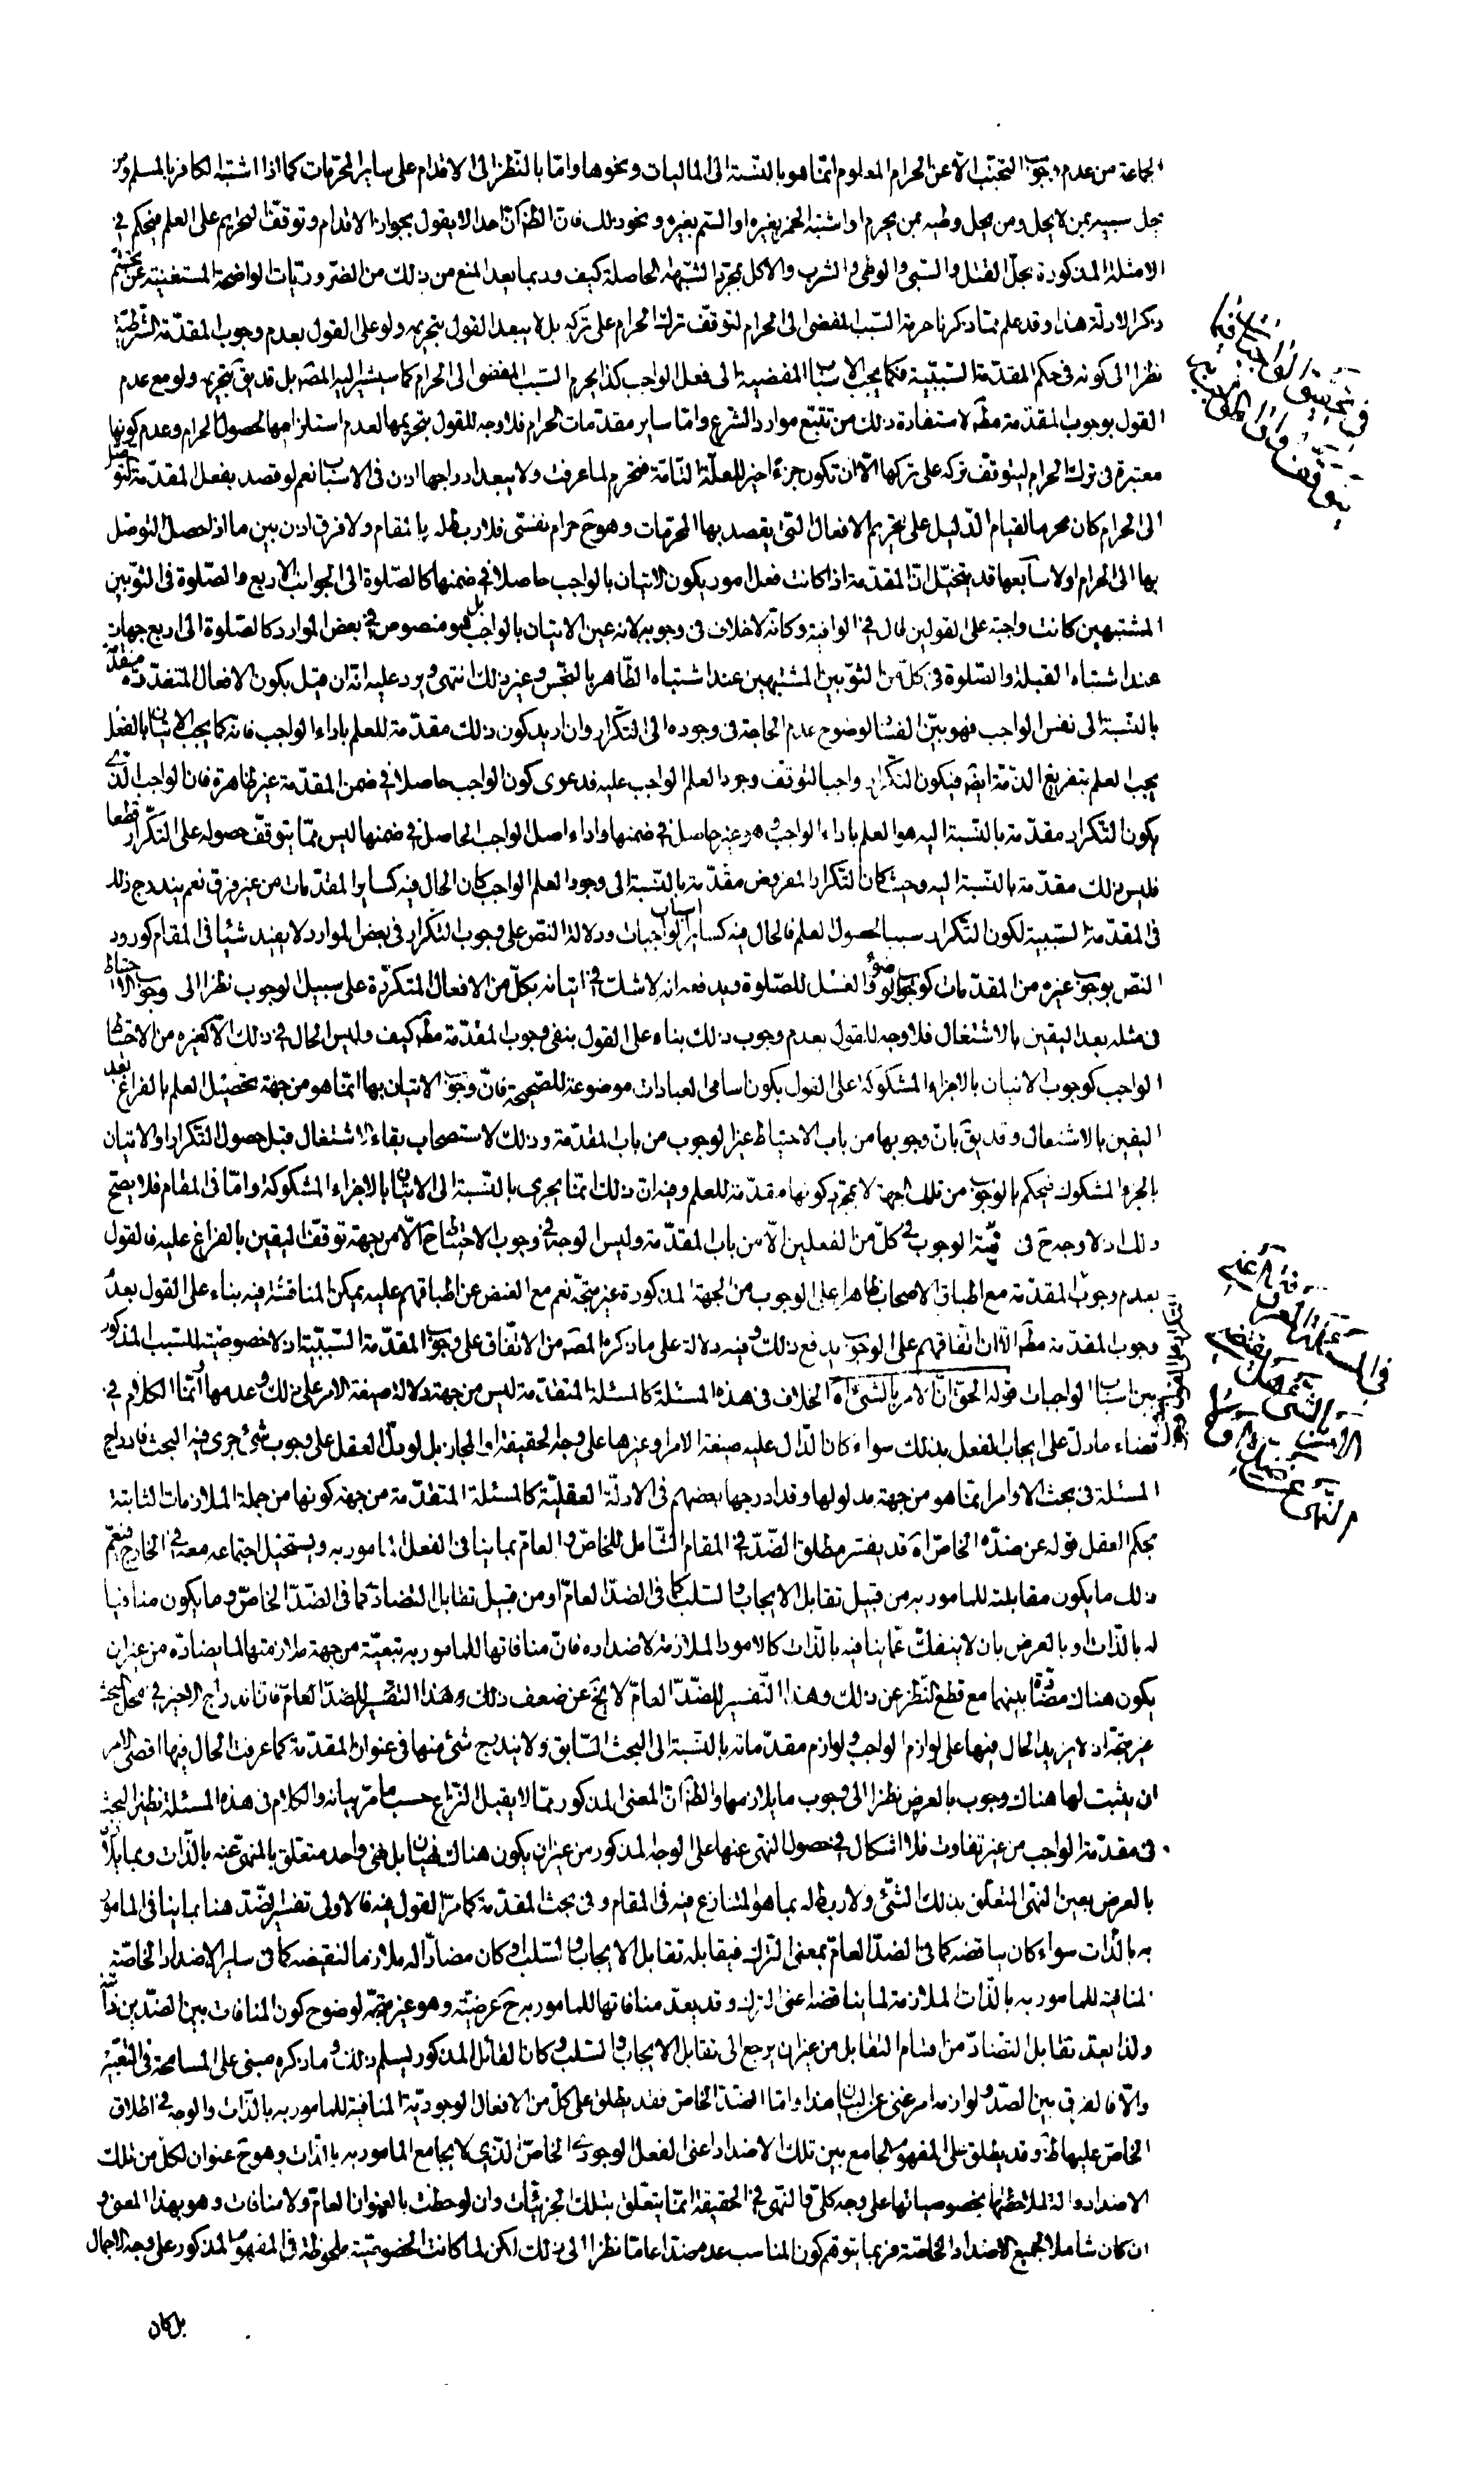 الجماعة من عدم وجوب التجنّب الّا عن الحرام المعلوم انّما هو بالنّسبة الى الماليات ونحوها وامّا بالنّظر الى الاقدام على ساير المحرّمات كما اذا اشتبه الكافر بالمسلم ومن
يحل سبيه بمن لا يحل ومن يحل وطيه بمن يحرم او اشتبه الخمر بغيره او السّم بغيره ونحو ذلك فان الظّ انّ احدا لا يقول بجواز الاقدام وتوقّف التحريم على العلم فيحكم في
الامثلة المذكورة بحلّ القتل والسّبي والوطى والشرب والاكل بمجرّد الشّبهة الحاصلة كيف وربما يعد المنع من ذلك من الضّروريّات الواضحة المستغنية عن تجشّم
ذكر الادلّة هذا وقد علم ممّا ذكرنا حرمة السّبب المفضى الى الحرام لتوقّف ترك الحرام على تركه بل لا يبعد القول بتحريمه ولو على القول بعدم وجوب المقدّمة الشّرطيّة
نظرا الى كونه في حكم المقدّمة السّببيّة فكما يجب الاسباب المفضية الى فعل الواجب كذا يحرم السّبب المفضى الى الحرام كما سيشير اليه المصّ بل قد يق بتحريمه ولو مع عدم
القول بوجوب المقدّمة مطّ لاستفادة ذلك من تتبّع موارد الشّرع وامّا ساير مقدّمات الحرام فلا وجه للقول بتحريمها لعدم استلزامها لحصول الحرام وعدم كونها
معتبرة في ترك الحرام ليتوقّف تركه على تركها الّا ان تكون جزءً اخير للعلّة التّامّة فتحرم لما عرفت ولا يبعد ادراجها اذن في الاسباب نعم لو قصد بفعل المقدّمة التّوصّل
الى الحرام كان محرما لقيام الدّليل على تحريم الافعال التى يقصد بها المحرّمات وهو ح حرام نفسّى فلا ربط له بالمقام ولا فرق اذن بين ما اذا حصل التوصّل
بها الى الحرام او لا سابعها قد يتخيّل انّ المقدّمة اذا كانت فعل امور يكون الاتيان بالواجب حاصلا في ضمنها كالصّلوة الى الجوانب الاربع والصّلوة في الثّوبين
المشتبهين كانت واجبة على القولين قال في الوافية وكانّه لا خلاف في وجوبه لانه عين الاتيان بالواجب بل هو منصوص في بعض الموارد كالصّلوة الى اربع جهات
عند اشتباه القبلة والصّلوة في كلّ من الثّوبين المشتبهين عند اشتباه الطّاهر بالنّجس وغير ذلك انتهى ويرد عليه انّه ان قيل بكون الافعال المتعدّدة مقدّمة
بالنّسبة الى نفس الواجب فهو بيّن الفساد لوضوح عدم الحاجة في وجوده الى التّكرار وان اريد كون ذلك مقدّمة للعلم باداء الواجب فانّه كما يجب الاتيان بالفعل
يجب العلم بتفريغ الذّمّة ايضا فيكون التّكرار واجبا لتوقّف وجود العلم الواجب عليه فدعوى كون الواجب حاصلا في ضمن المقدّمة غير ظاهرة فان الواجب الّذى
يكون التّكرار مقدّمة بالنّسبة اليه هو العلم باداء الواجب وهو غير حاصل في ضمنها واداء اصل الواجب الحاصل في ضمنها ليس ممّا يتوقّف حصوله على التّكرار قطعا
فليس ذلك مقدّمة بالنّسبة اليه وحيث كان التّكرار المفروض مقدّمة بالنّسبة الى وجود العلم الواجب كان الحال فيه كساير المقدّمات من غير فرق نعم يندرج ذلك
في المقدّمة السّببية لكون التّكرار سببا لحصول العلم فالحال فيه كساير اسباب الواجبات ودلالة النّص على وجوب التّكرار في بعض الموارد لا يفيد شيئا في المقام كورود
النّص بوجوب غيره من المقدّمات كوجوب الوضوء والغسل للصّلوة ويدفعه انه لا شك في اتيانه بكلّ من الافعال المتكرّرة على سبيل الوجوب نظرا الى وجوب الاحتياط
في مثله بعد اليقين بالاشتغال فلا وجه للقول بعدم وجوب ذلك بناء على القول بنفى وجوب المقدّمة مطّ كيف وليس الحال في ذلك الّا كغيره من الاحتياط
الواجب كوجوب الاتيان بالاجزاء المشكوكة على القول بكون اسامى العبادات موضوعة للصّحيحة فانّ وجوب الاتيان بها انّما هو من جهة تحصيل العلم بالفراغ بعد
اليقين بالاشتغال وقد يق بانّ وجوبها من باب الاحتياط غير الوجوب من باب المقدّمة وذلك لاستصحاب بقاء الاشتغال قبل حصول التّكرار او الاتيان
بالجزء المشكوك فيحكم بالوجوب من تلك الجهة لا بمجرّد كونها مقدّمة للعلم وفيه انّ ذلك انّما يجرى بالنّسبة الى الاتيان بالاجزاء المشكوكة وامّا في المقام فلا يصحّ
ذلك اذ لا وجه ح في نيّة الوجوب في كلّ من الفعلين الّا من باب المقدّمة وليس الوجه في وجوب الاحتياط ح الّا من جهة توقّف اليقين بالفراغ عليه فالقول
بعدم وجوب المقدّمة مع اطباق الاصحاب ظاهرا على الوجوب من الجهة المذكورة غير متّجه نعم مع الغضّ عن اطباقهم عليه يمكن المناقشة فيه بناء على القول بعدم
وجوب المقدّمة مطّ الّا ان اتّفاقهم على الوجوب يدفع ذلك وفيه دلالة على ما ذكره المصّ من الاتّفاق على وجوب المقدّمة السّببيّة اذ لا خصوصيّة للسّبب المذكور
بين اسباب الواجبات قوله الحقّ انّ الامر بالشّىء اه الخلاف في هذه المسئلة كالمسئلة المتقدّمة ليس من جهة دلالة صيغة الامر على ذلك وعدمها انّما الكلام في
قضاء ما دلّ على ايجاب الفعل بذلك سواء كان الدّالّ عليه صيغة الامر او غيرها على وجه الحقيقة او المجاز بل لو دلّ العقل على وجوب شىء جرى فيه البحث فادراج
المسئلة في بحث الاوامر انّما هو من جهة مدلولها وقد ادرجها بعضهم في الادلّة العقليّة كالمسئلة المتقدّمة من جهة كونها من جملة الملازمات الثابتة
بحكم العقل قوله عن ضدّه الخاصّ اه قد يفسّر مطلق الضّدّ في المقام الشّامل للخاصّ والعامّ بما ينافى الفعل المامور به ويستحيل اجتماعه معه في الخارج فيعمّ
ذلك ما يكون مقابلته للمامور به من قبيل تقابل الايجاب والسّلب كما في الضدّ العامّ او من قبيل تقابل التضادّ كما في الضّدّ الخاصّ وما يكون منافيا
له بالذّات او بالعرض بان لا ينفكّ عمّا ينافيه بالذّات كالامور الملازمة لاضداده فانّ منافاتها للمامور به تبعيّة من جهة ملازمتها لما يضادّه من غير ان
يكون هناك مضادّة بينهما مع قطع النّظر عن ذلك وهذا التّفسير للضّدّ العامّ لا يخ عن ضعف ذلك وهذا التفسير للضدّ العامّ فانّ اندراج الاخير في محل البحث
غير متّجه اذ لا يزيد الحال فيها على لوازم الواجب ولوازم مقدّماته بالنّسبة الى البحث السّابق ولا يندرج شىء منها في عنوان المقدّمة كما عرفت الحال فيها اقصى الامر
ان يثبت لها هناك وجوب بالعرض نظرا الى وجوب ما يلازمها والظّ انّ المعنى المذكور ممّا لا يقبل النّزاع حسب ما مرّ بيانه والكلام في هذه المسئلة نظير البحث
في مقدّمة الواجب من غير تفاوت فلا اشكال في حصول النّهى عنها على الوجه المذكور من غير ان يكون هناك نهيان بل نهى واحد متعلّق بالمنهى عنه بالذّات وبما يلازمه
بالعرض بعين النهى المتعلّق بذلك الشّىء ولا ربط له بما هو المتنازع فيه في المقام وفى بحث المقدّمة كما مرّ القول فيه فالاولى تفسير الضّدّ هنا بما ينافى المامور
به بالذّات سواء كان يناقضه كما في الضدّ العامّ بمعنى التّرك فيقابله تقابل الايجاب والسّلب او كان مضادّا له ملازما لنقيضه كما في ساير الاضداد الخاصّة
المنافية للمامور به بالذّات الملازمة لما يناقضه اعنى الترك وقد يعدّ منافاتها للمامور به ح عرضيّة وهو غير متّجه لوضوح كون المنافات بين الضدّين ذاتيّة
ولذا يعدّ تقابل التضادّ من اقسام التقابل من غير ان يرجع الى تقابل الايجاب والسّلب وكان القائل المذكور يسلم ذلك وما ذكره مبنى على المسامحة في التّعبير
والّا فالفرق بين الضدّ ولوازمه امر غنى عن البيان هذا وامّا الضّدّ الخاصّ فقد يطلق على كلّ من الافعال الوجوديّة المنافية للمامور به بالذّات والوجه في اطلاق
الخاصّ عليها ظّ وقد يطلق على المفهوم الجامع بين تلك الاضداد اعنى الفعل الوجودى الخاصّ الّذى لا يجامع المامور به بالذّات وهو ح عنوان لكلّ من تلك
الاضداد والة لملاحظتها بخصوصياتها على وجه كلّى فالنهى في الحقيقة انّما يتعلّق بتلك الجزئيّات وان لوحظت بالعنوان العامّ ولا منافات وهو بهذا المعنى و
ان كان شاملا لجميع الاضداد الخاصّة فربما يتوهّم كون المناسب عده ضدا عامّا نظرا الى ذلك لكن لما كانت الخصوصيّة ملحوظة في المفهوم المذكور على وجه الاجمال
بل كان